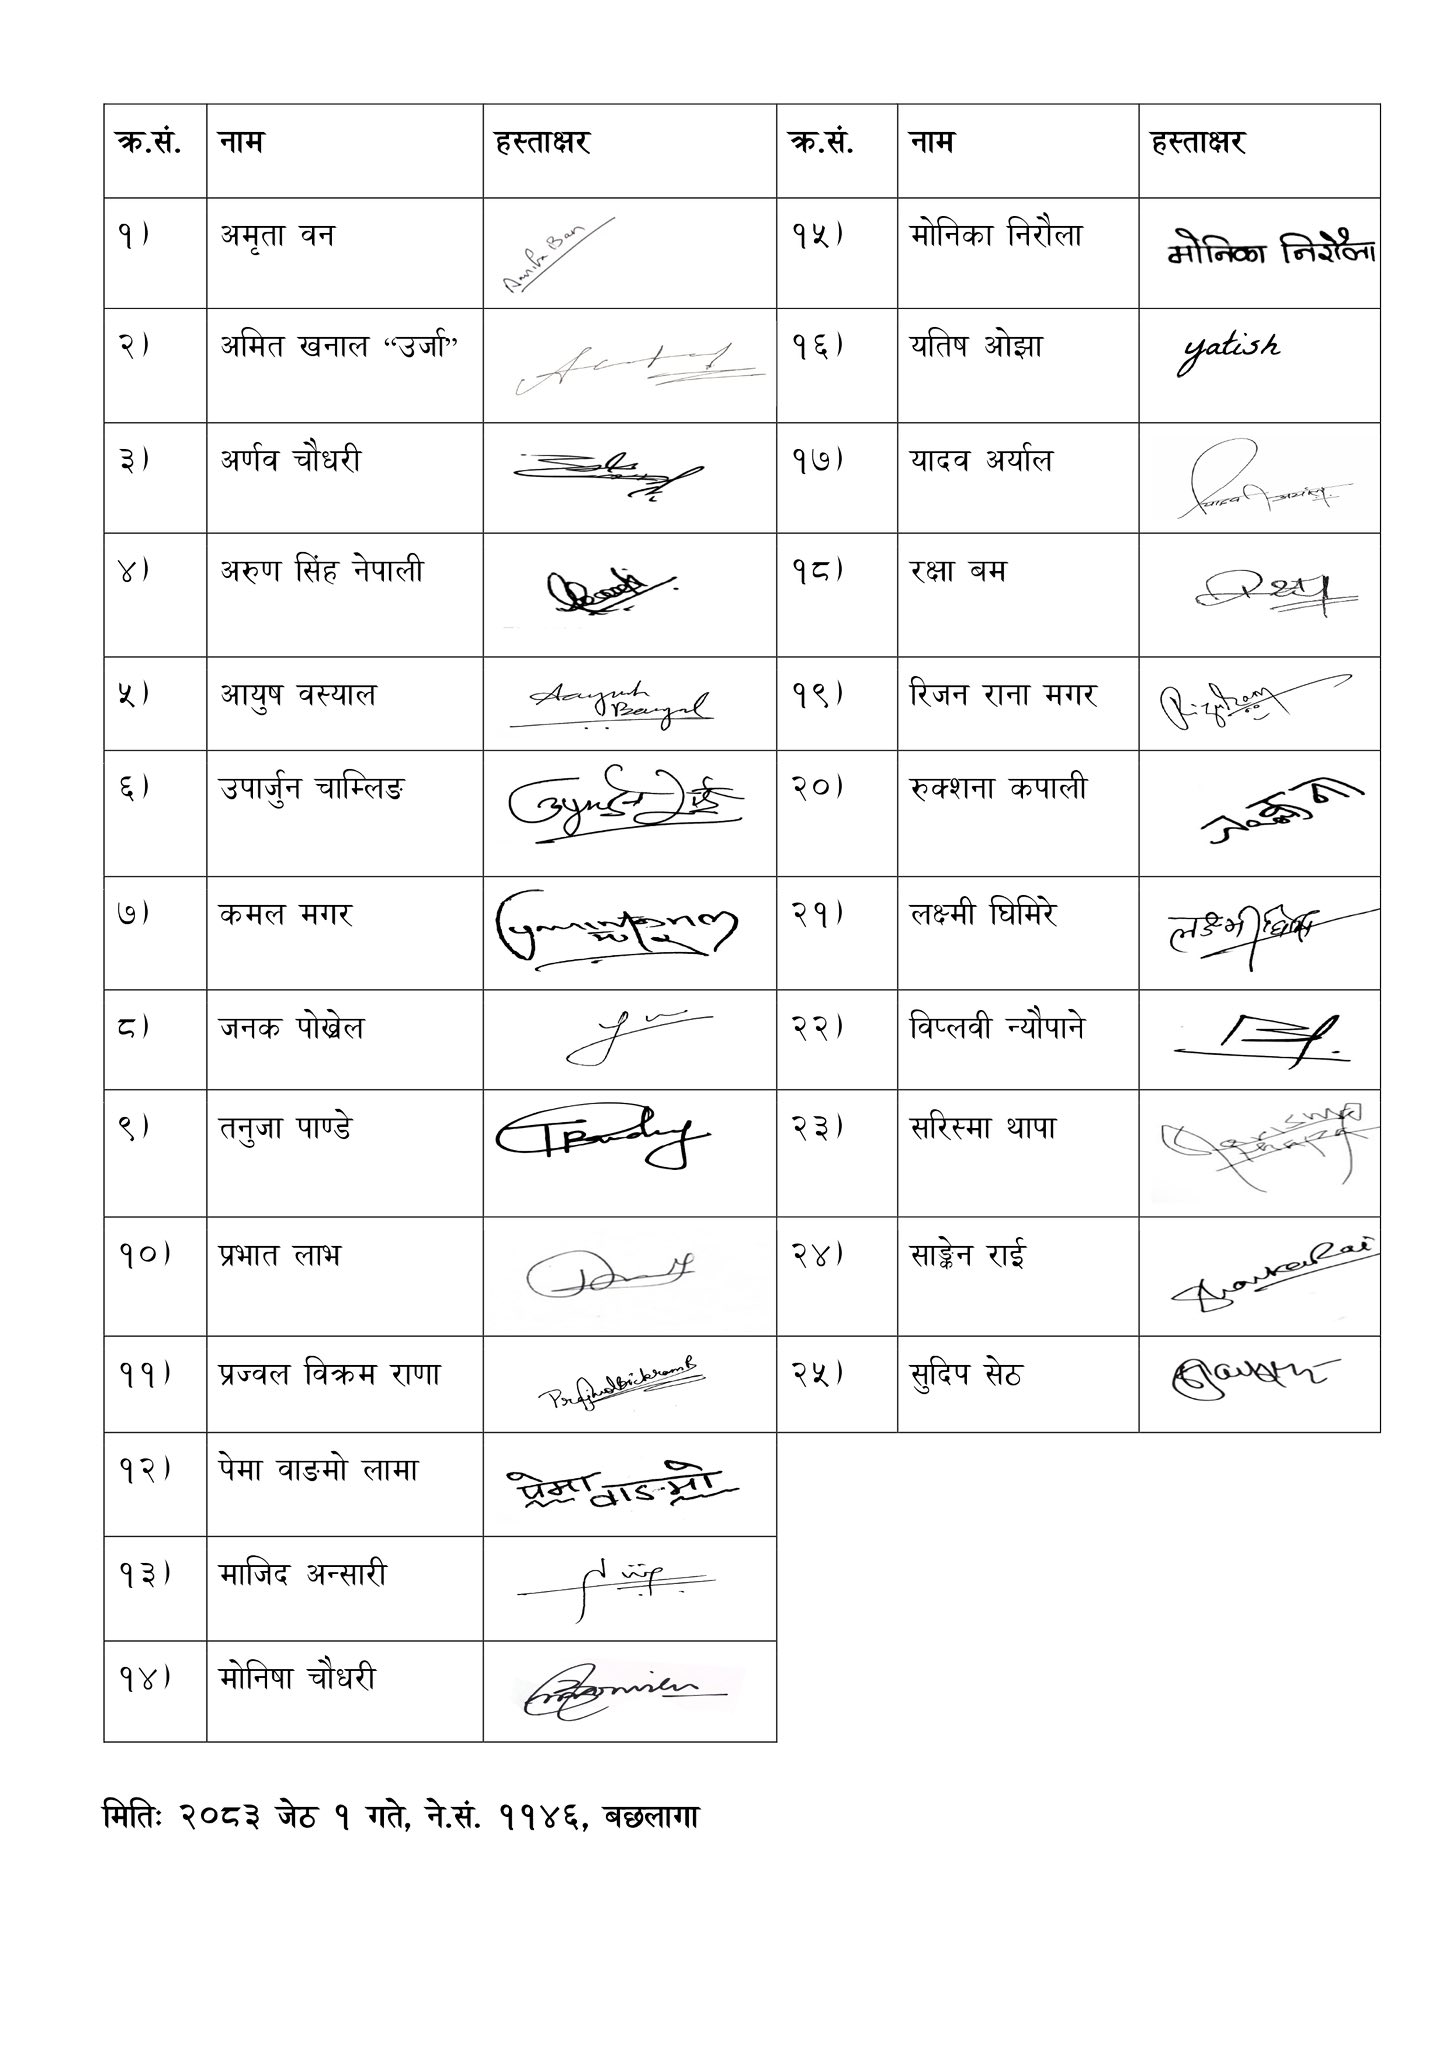 क्र.सं. नाम हस्ताक्षर क्र.सं. नाम हस्ताक्षर
१) अमृता वन Amrita Ban १५) मोनिका निरौला मोनिका निरौला
२) अमित खनाल “उर्जा” १६) यतिष ओझा yatish
३) अर्णव चौधरी १७) यादव अर्याल यादव अर्याल
४) अरुण सिंह नेपाली १८) रक्षा बम
५) आयुष वस्याल Aayush १९) रिजन राना मगर
६) उपार्जुन चाम्लिङ २०) रुक्शना कपाली
७) कमल मगर २१) लक्ष्मी घिमिरे लक्ष्मी घिमिरे
८) जनक पोख्रेल २२) विप्लवी न्यौपाने
९) तनुजा पाण्डे TPandey २३) सरिस्मा थापा Sarisma Thapa
१०) प्रभात लाभ २४) साङ्केन राई
११) प्रज्वल विक्रम राणा २५) सुदिप सेठ
१२) पेमा वाङमो लामा पेमा वाङमो
१३) माजिद अन्सारी
१४) मोनिषा चौधरी
मितिः २०८३ जेठ १ गते, ने.सं. ११४६, बछलागा